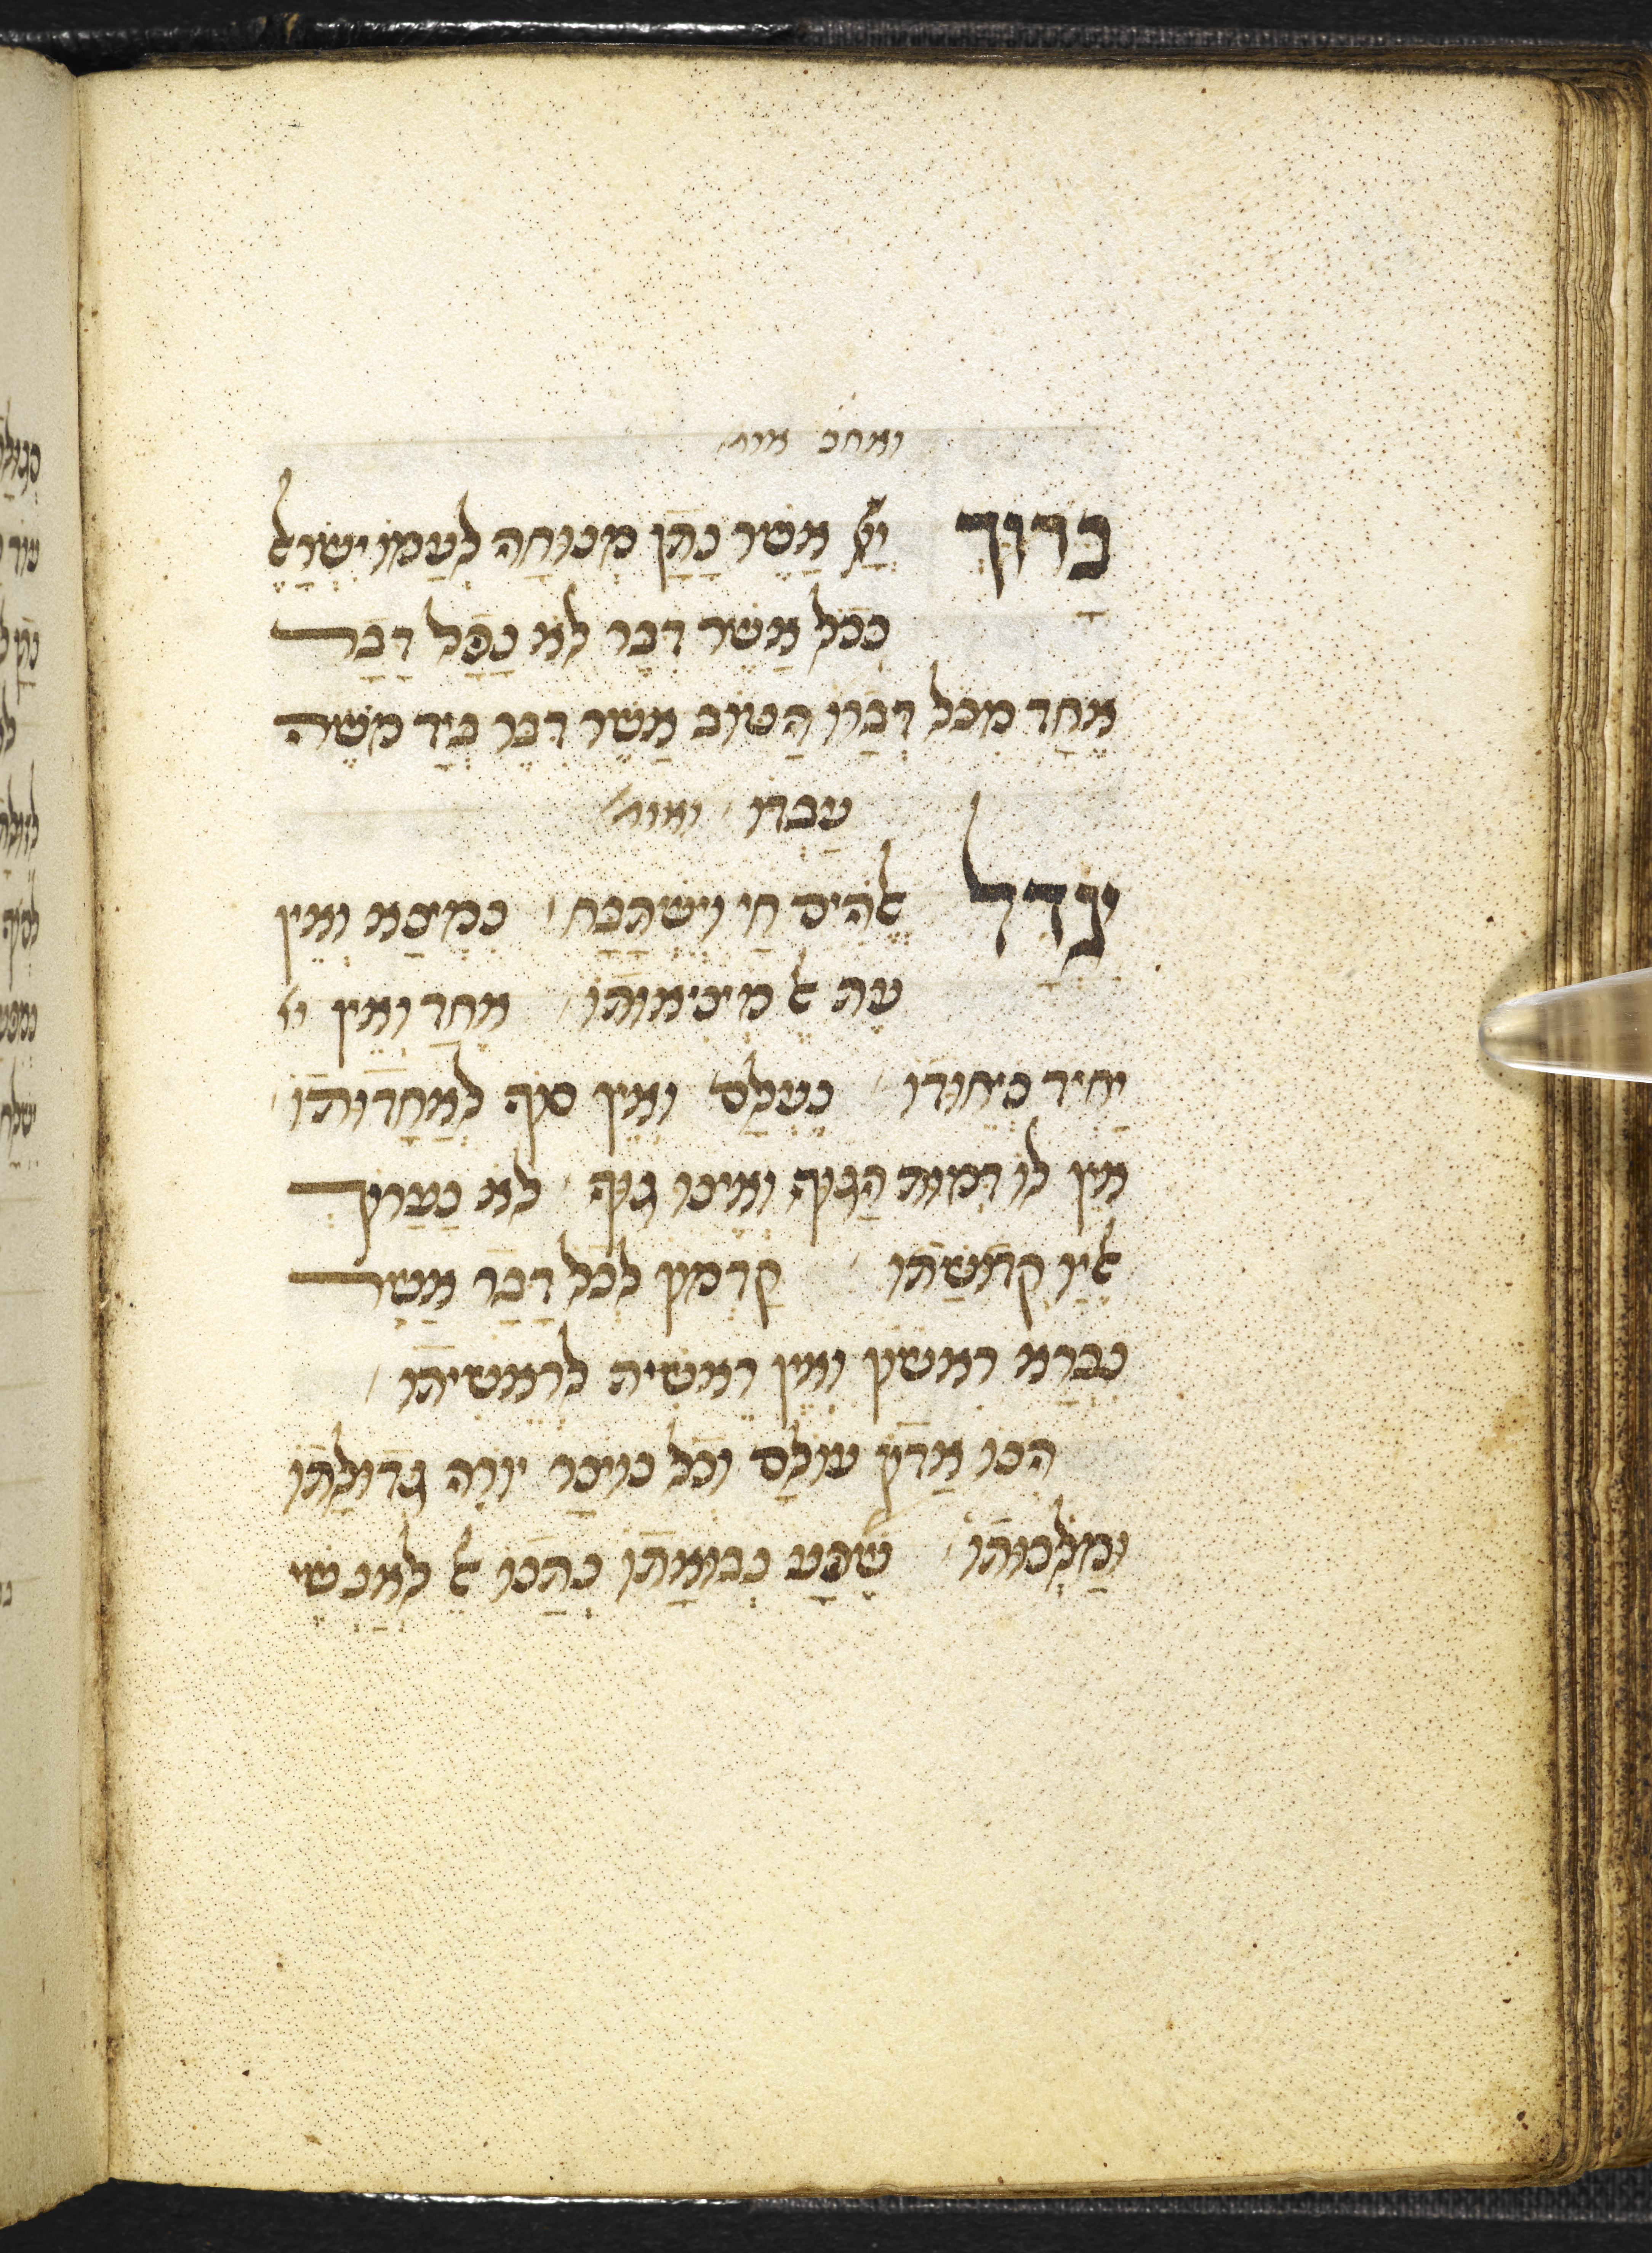 ואחכ אומ׳
בָרוּךְ יְיָ אֲשֶׁר נָתַן מְנוּחָה לְעַמּוֹ יִשְׂרָאֵל
כְּכֹל אֲשֶׁר דִּבֶּר לֹא נָפַל דָּבָר
אֶחָד מִכֹּל דְּבָרוֹ הַטּוֹב אֲשֶׁר דִּבֶּר בְּיַד מֹשֶׁה
עַבְדּוֹ ואומ׳
יִגְדַּל אֱלֹהִים חַי וְיִשְׁתַּבַּח נִמְצָא וְאֵין
עֵת אֶל מְצִיאוּתוֹ אֶחָד וְאֵין י
יָחִיד כְּיִחוּדוֹ נֶעְלָם וְאֵין סוֹף לְאַחְדוּתוֹ
אֵין לוֹ דְּמוּת הַגּוּף וְאֵינוֹ גוּף לֹא נַעֲרוֹךְ
אֵלָיו קְדֻשָּׁתוֹ קַדְמוֹן לְכָל דָּבָר אֲשֶׁר
נִבְרָא רִאשׁוֹן וְאֵין רֵאשִׁית לְרֵאשִׁיתוֹ
הִנּוֹ אֲדוֹן עוֹלָם וְכָל נוֹצָר יוֹרֶה גְדוּלָּתוֹ
וּמַלְכוּתוֹ שֶׁפַע נְבוּאָתוֹ נְתָנוֹ אֶל לְאַנְשֵׁי